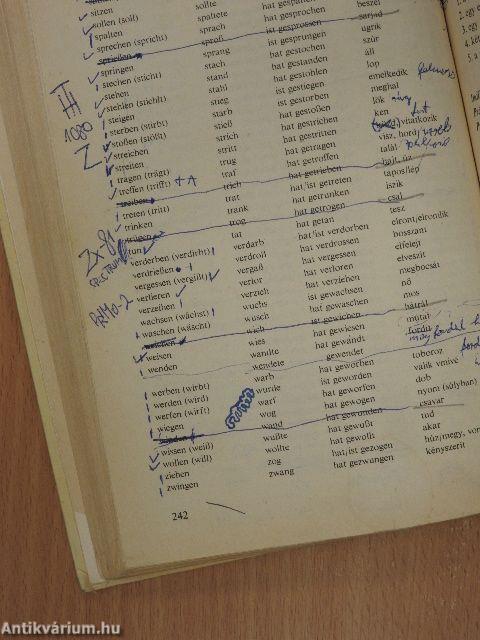 sitzen wollte hat gesprochen beszél
sollen (soll) spaltete hat gesprochen
spalten sprach
sprechen (spricht) sproß ist gesprossen sarjad
sprießen sprang ist gesprungen ugrik
springen stach hat gestochen szúr
stechen (sticht) stand hat gestanden áll
stehen stahl hat gestohlen lop
stehlen (stiehlt) stieg ist gestiegen emelkedik
steigen starb ist gestorben meghal
sterben (stirbt) stieß hat gestoßen lök
stoßen (stößt) strich hat gestrichen ken
streichen stritt hat gestritten vitatkozik
streiten trug hat getragen visz, hord
tragen (trägt) traf hat getroffen talál
treffen (trifft) + A trieb hat getrieben hajt, űz
treiben trat hat/ist getreten tapos/lép
treten (tritt) trank hat getrunken iszik
trinken trog hat getrogen csal
trügen tat hat getan tesz
tun verdarb hat/ist verdorben elront/elromlik
verderben (verdirbt) verdroß hat verdrossen bosszant
verdrießen vergaß hat vergessen elfelejt
vergessen (vergißt) verlor hat verloren elveszít
verlieren verzieh hat verziehen megbocsát
verzeihen wuchs ist gewachsen nő
wachsen (wächst) wusch hat gewaschen mos
waschen (wäscht) wich ist gewichen hátrál
weichen wies hat gewiesen mutat
weisen wandte hat gewandt fordul
wenden wendete gewendet
werben (wirbt) warb hat geworben toboroz
werden (wird) wurde ist geworden válik vmivé
werfen (wirft) warf hat geworfen dob
wiegen wog hat gewogen nyom (súlyban)
winden wand hat gewunden csavar
wissen (weiß) wußte hat gewußt tud
wollen (will) wollte hat gewollt akar
ziehen zog hat/ist gezogen húz/megy, von
zwingen zwang hat gezwungen kényszerít
242
1080
Zx81
SPECTRUM
Antikvárium.hu